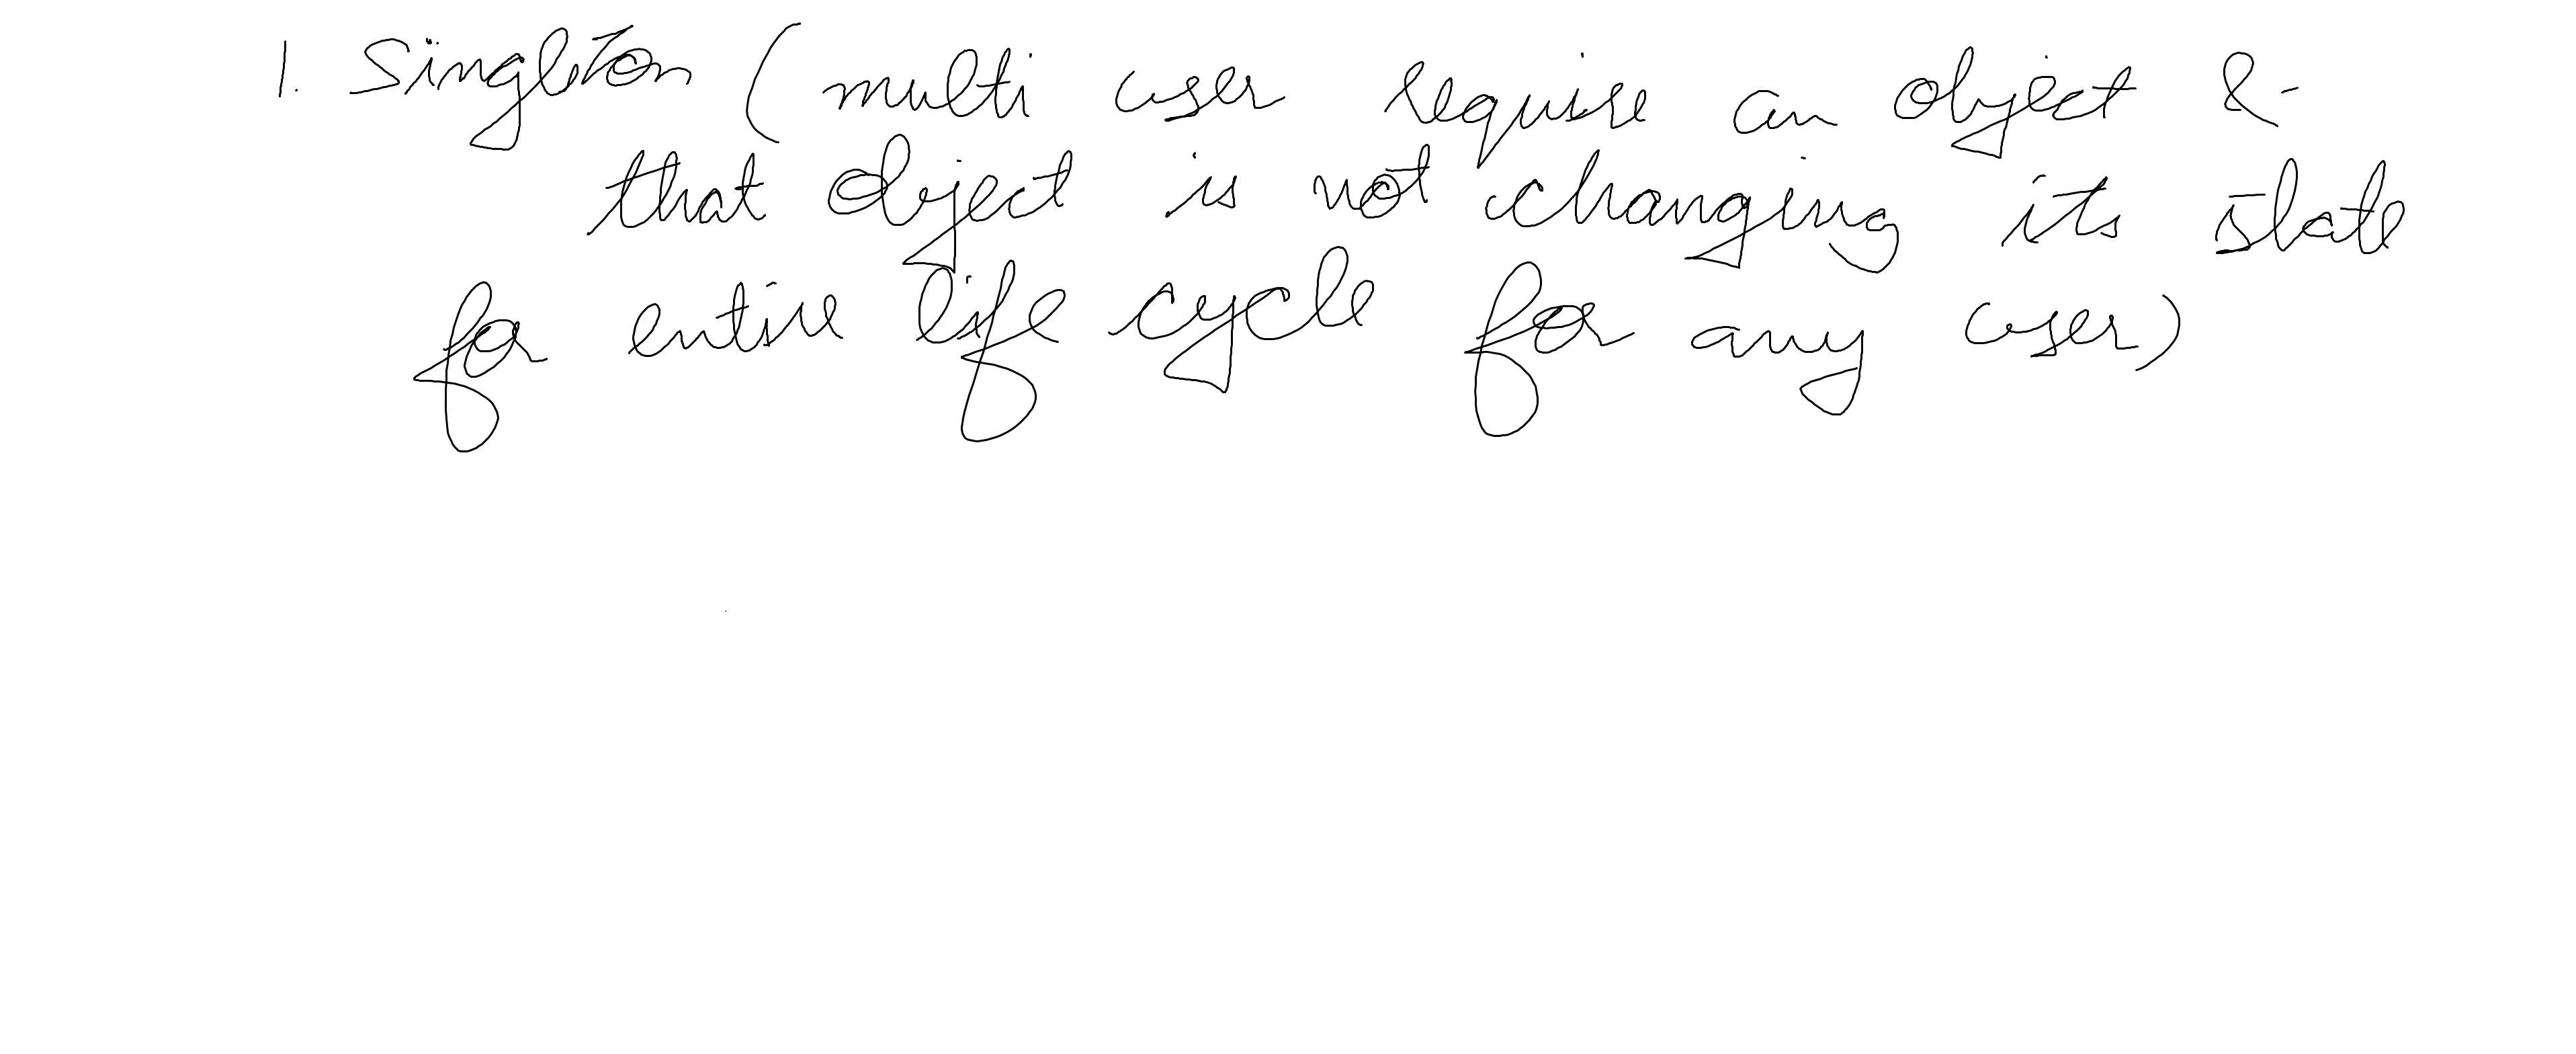 1. Singleton ( multi user require an object &
that object is not changing its state
for entire life cycle for any user)